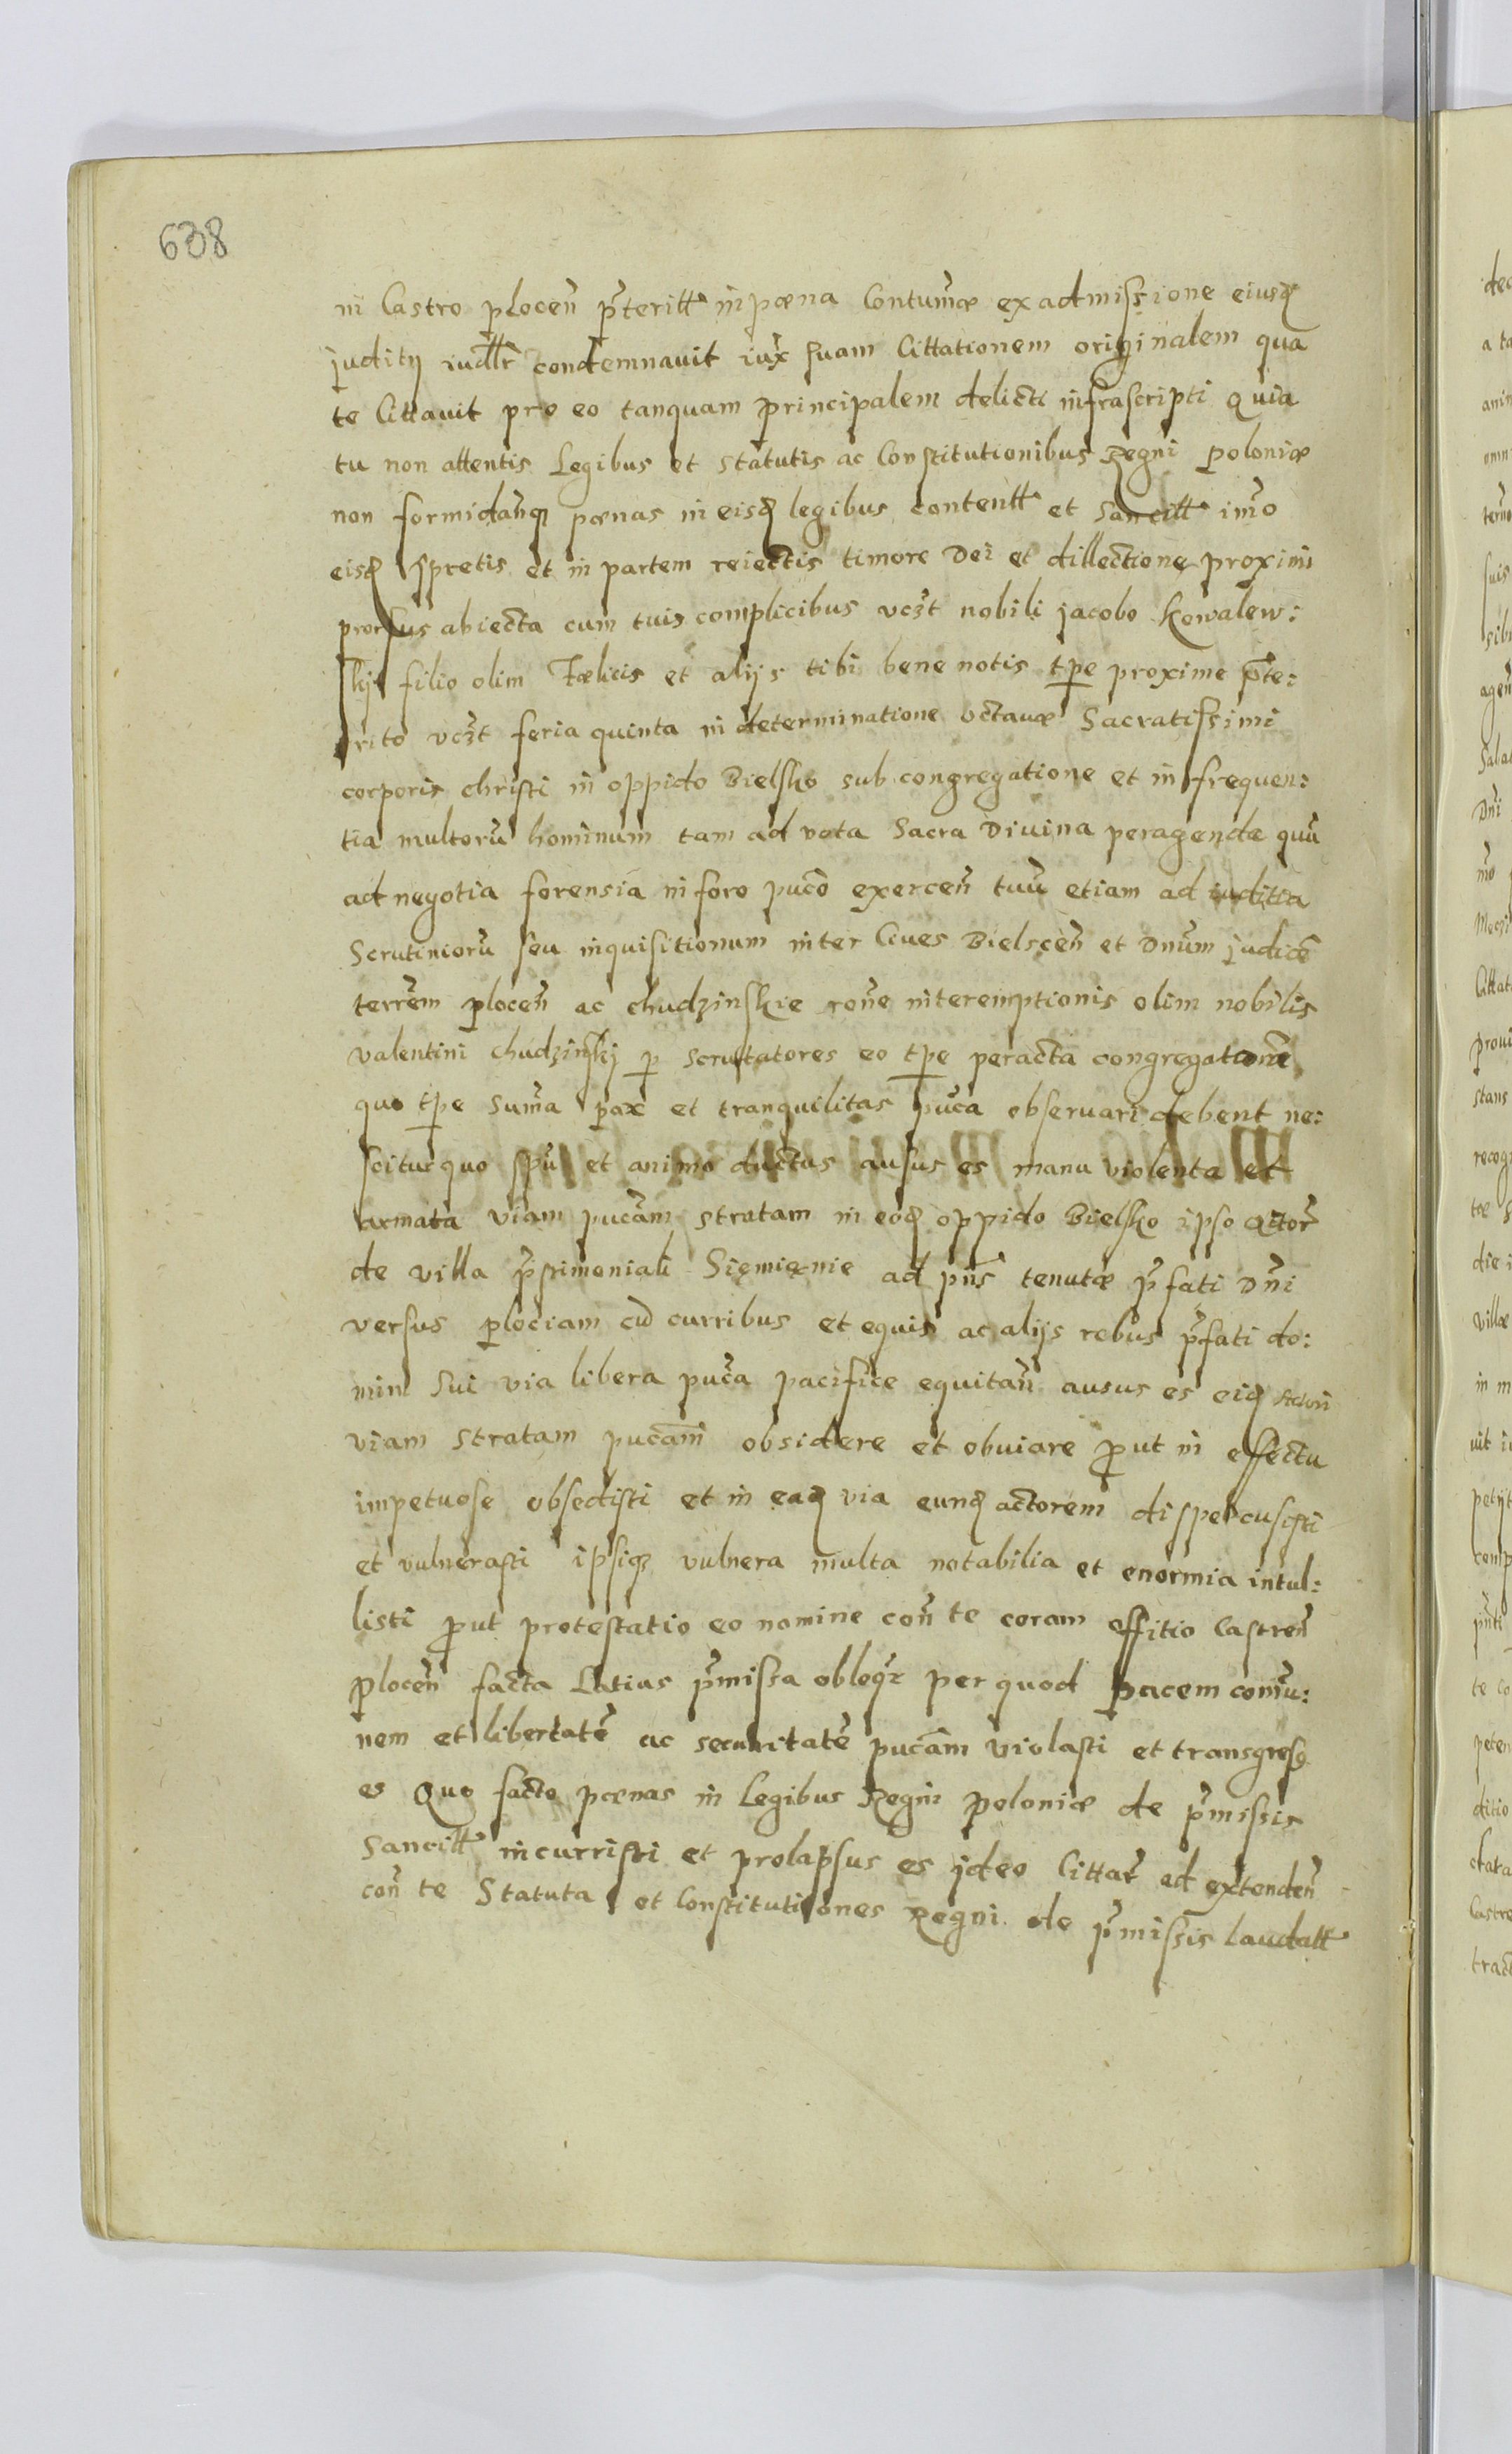 638
in Castro plocen̄ p̄terittꝭ in pœna Contum̄æ ex admissione eiusd
juditÿ iudllr̄ condemnavit iux̄ suam Cittationem originalem qua
te Cittavit pro eo tanquam principalem delicti infrascripti Quia
tu non attentis Legibus et Statutis ac Constitutionibus Regni Poloniæ
non formidan̄q pœnas in eisd legibus contenttꝭ et Sancittꝭ im̄o
eisd spretis et in partem reiectis timore Dei et dillectione proximi
prorsus abiecta cum tuis complicibus vczt nobili jacobo Kowalew:
skj filio olim Fœlicis et alÿs tibi bene notis tp̄e proxime p̄te:
rito vczt feria quinta in determinatione octavæ Sacratissimi
corporis christi in oppido Bielsko sub congregatione et in frequen:
tia multorū hominum tam ad vota Sacra Divina peragenda quū
ad negotia forensia in foro puc̄o exercen̄ tuū etiam ad iuditia
Scrutiniorū seu inquisitionum inter Cives Bielscen̄ et Dnūm judicē
terrēm plocen̄ ac chudzinskie rōne interemptionis olim nobilis
valentini chudzinskj p scrutatores eo tp̄e peracta congregationē
quo tp̄e sum̄a pax et tranquilitas puc̄a observari debent ne:
scitur quo spū et animo ductus ausus es manu violenta et
armata viam puc̄am stratam in eod oppido Bielsko ipso Actor̄
de villa p̄trimoniali Siemienie ad pn̄s tenutæ p̄fati Dn̄i
versus plociam cū curribus et equis ac alÿs rebus p̄fati do:
mini Sui via libera puc̄a pacifice equitan̄ ausus es eid Actori
viam stratam puc̄am obsidere et obviare prout in effectu
impetuose obsedisti et in ead via eund actorem dispercusisti
et vulnerasti ipsiq vulnera multa notabilia et enormia intul:
listi prout protestatio eo nomine con̄ te coram offitio Castren̄
plocen̄ facta Latius p̄missa obloqr̄ per quod pacem com̄u:
nem et libertatē ac securitatē puc̄am violasti et transgresꝯ
es Quo facto pœnas in Legibus Regni Poloniæ de p̄missis
Sancittꝭ incurristi et prolapsus es jdeo Cittar̄ ad extenden̄
con̄ te Statuta et Constitutiones Regni de p̄missis laudattꝭ